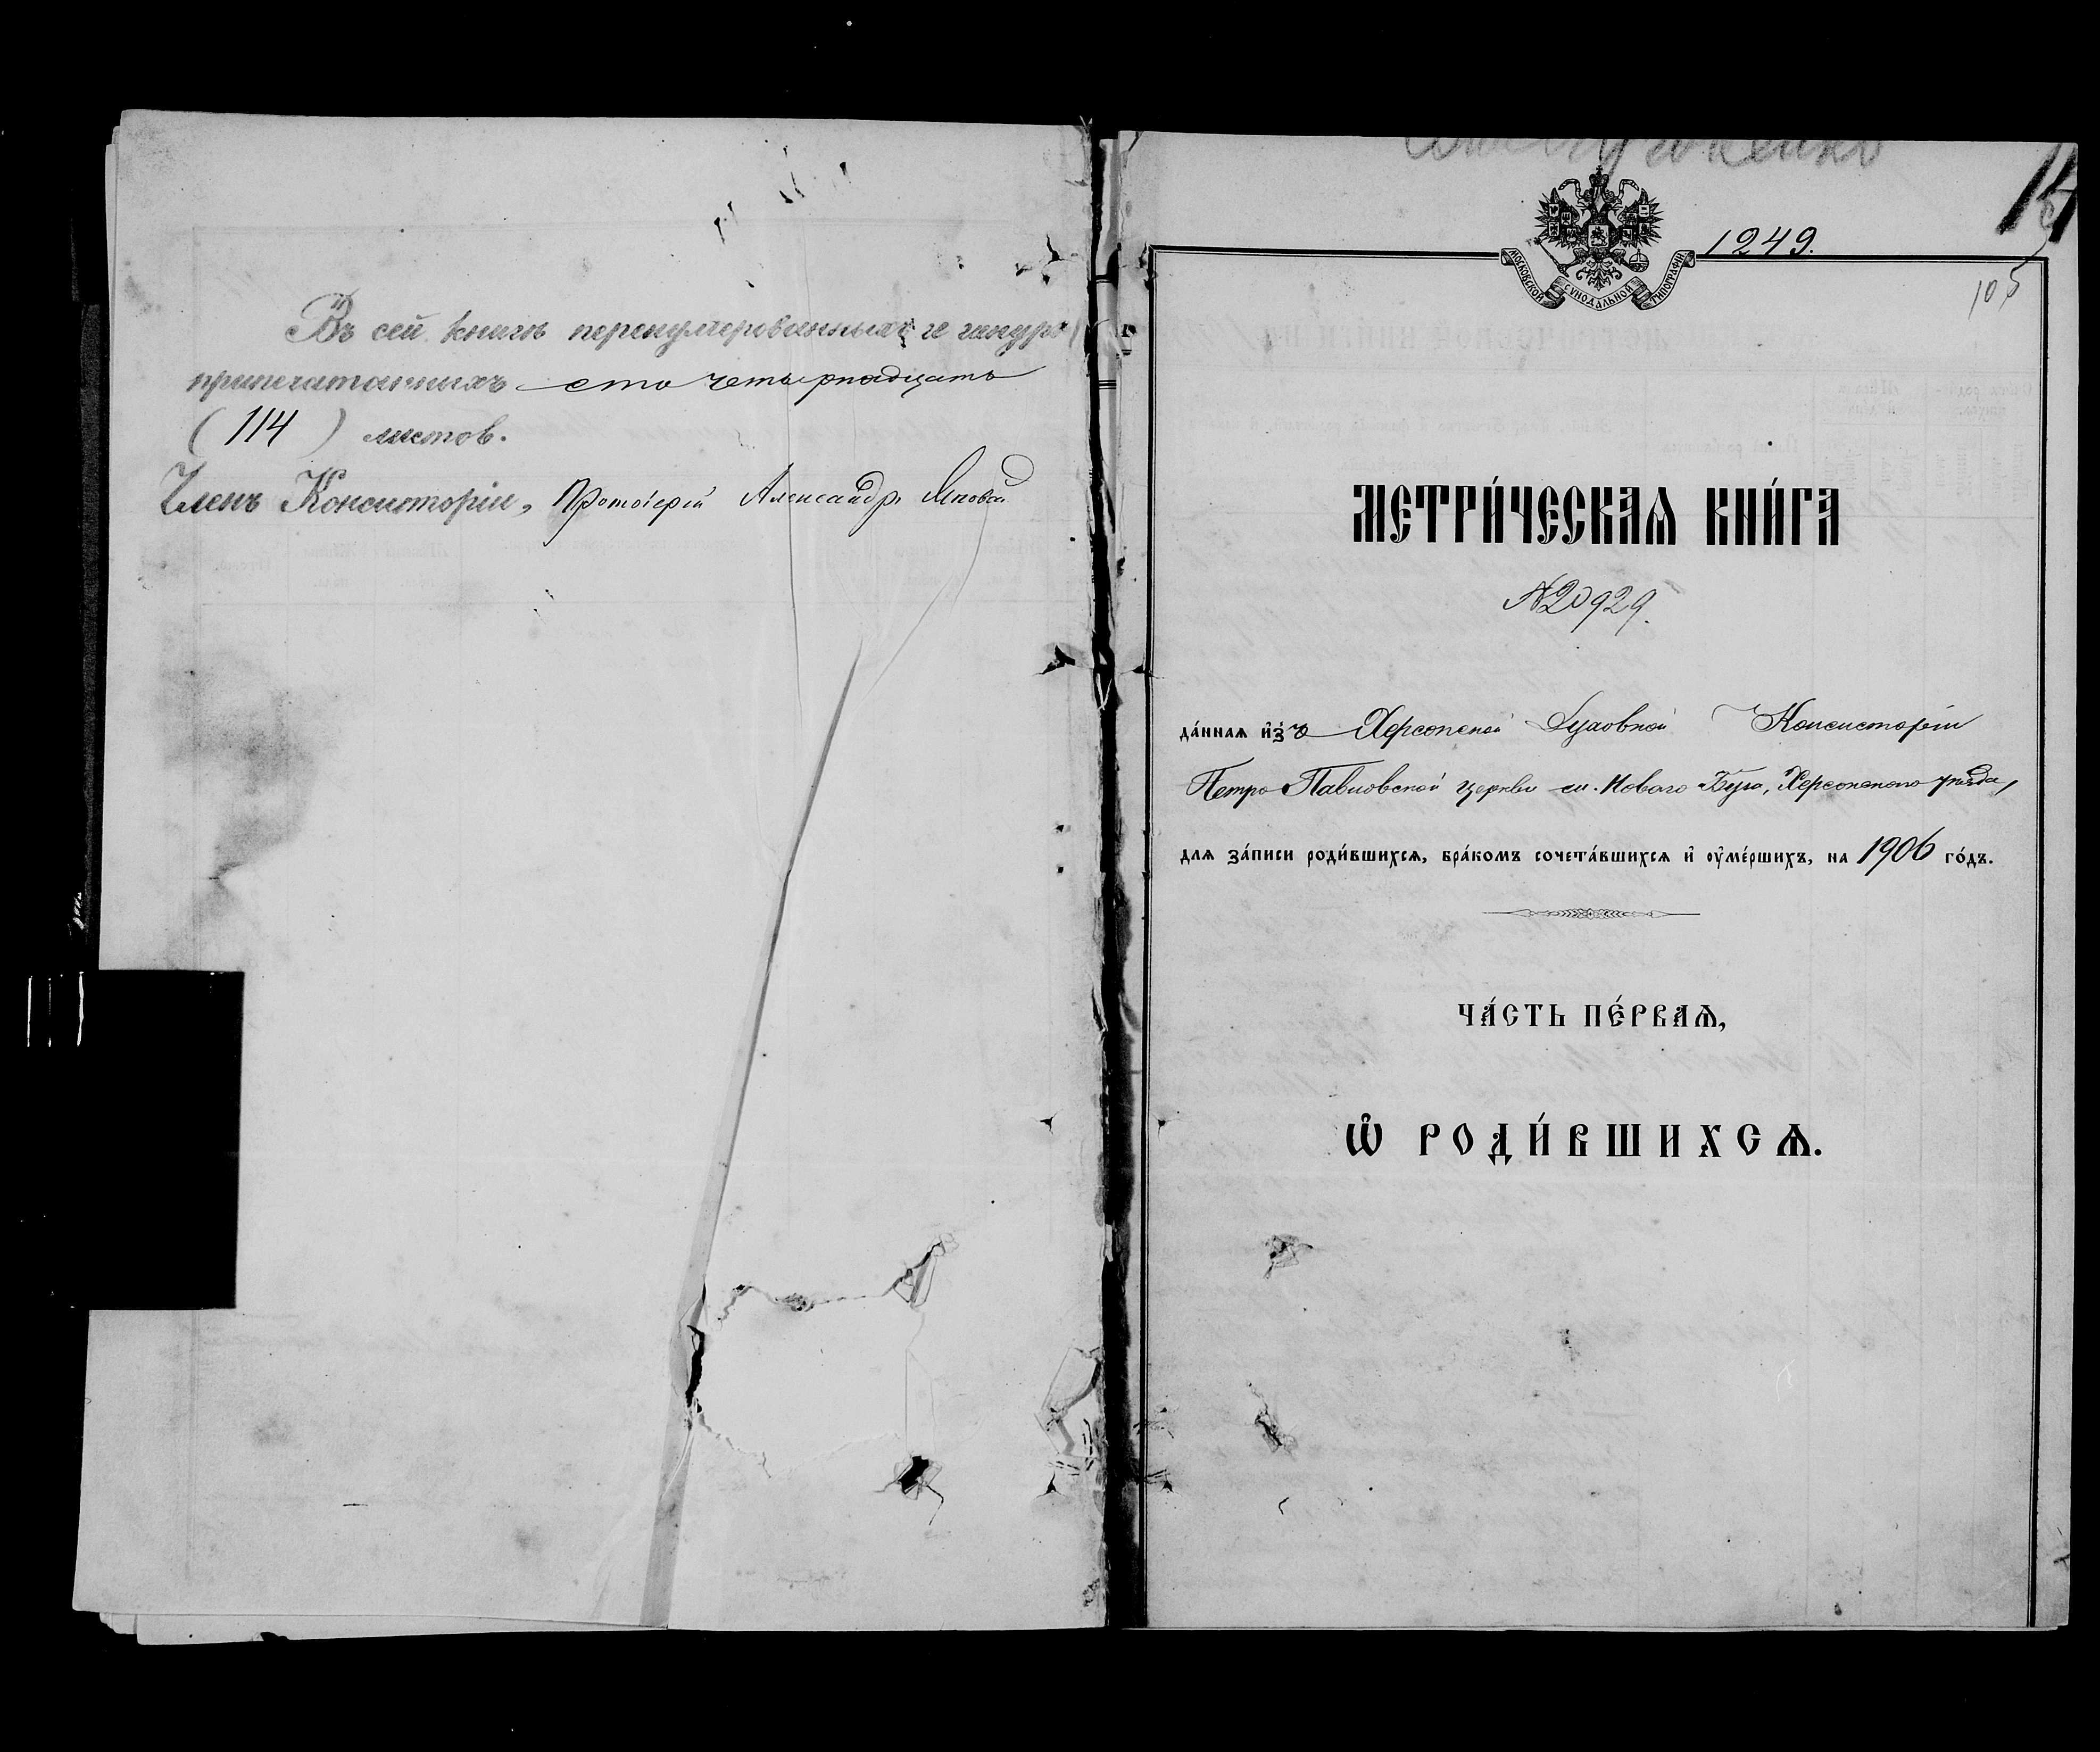 Въ сей книгѣ перенумерованныхъ и шнуро
припечатанныхъ сто четырнадцать
(114) листов.
Членъ Консисторіи, Протоіерей Александръ
1249.
105
МОСКОВСКОЙ СѴНОДАЛЬНОЙ ТИПОГРАФІИ
МЕТРИ́ЧЕСКАѦ КНИ́ГА
№20929.
да́ннаѧ и҆зъ Херсонской Духовной Консисторіи
Петро-Павловской церкви м. Новаго Буга, Херсонскаго уѣзда,
для за́писи роди́вшихсѧ, бра́комъ сочета́вшихсѧ и҆ ᲂу҆ме́ршихъ, на 1906 го́дъ.
ЧА́СТЬ ПЕ́РВАѦ,
Ѽ РОДИ́ВШИХСѦ.